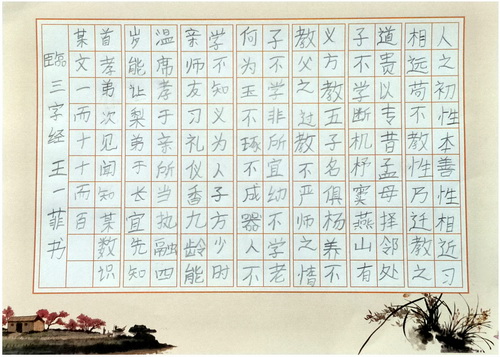 人之初性本善性相近习
相远苟不教性乃迁教之
道贵以专昔孟母择邻处
子不学断机杼窦燕山有
义方教五子名俱杨养不
教父之过教不严师之惰
子不学非所宜幼不学老
何为玉不琢不成器人不
学不知义为人子方少时
亲师友习礼仪香九龄能
温席孝于亲所当执融四
岁能让梨弟于长宜先知
首孝弟次见闻知某数识
某文一而十十而百
臨三字经王一菲书